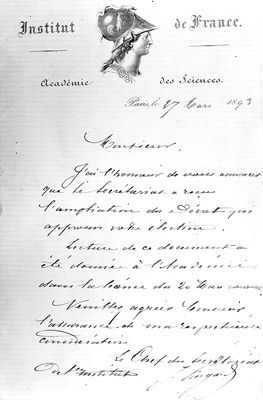 Institut de France.
Académie des Sciences.
Paris, le 27 Mars 1893
Monsieur,
J'ai l'honneur de vous annoncer
que le Secrétariat a reçu
l'ampliation du Décret qui
approuve votre élection.
Lecture de ce document a
été donnée à l'Académie
dans la séance du 20 Mars
Veuillez agréer Monsieur
l'assurance de ma
considération
Le Chef du Secrétariat
de l'Institut